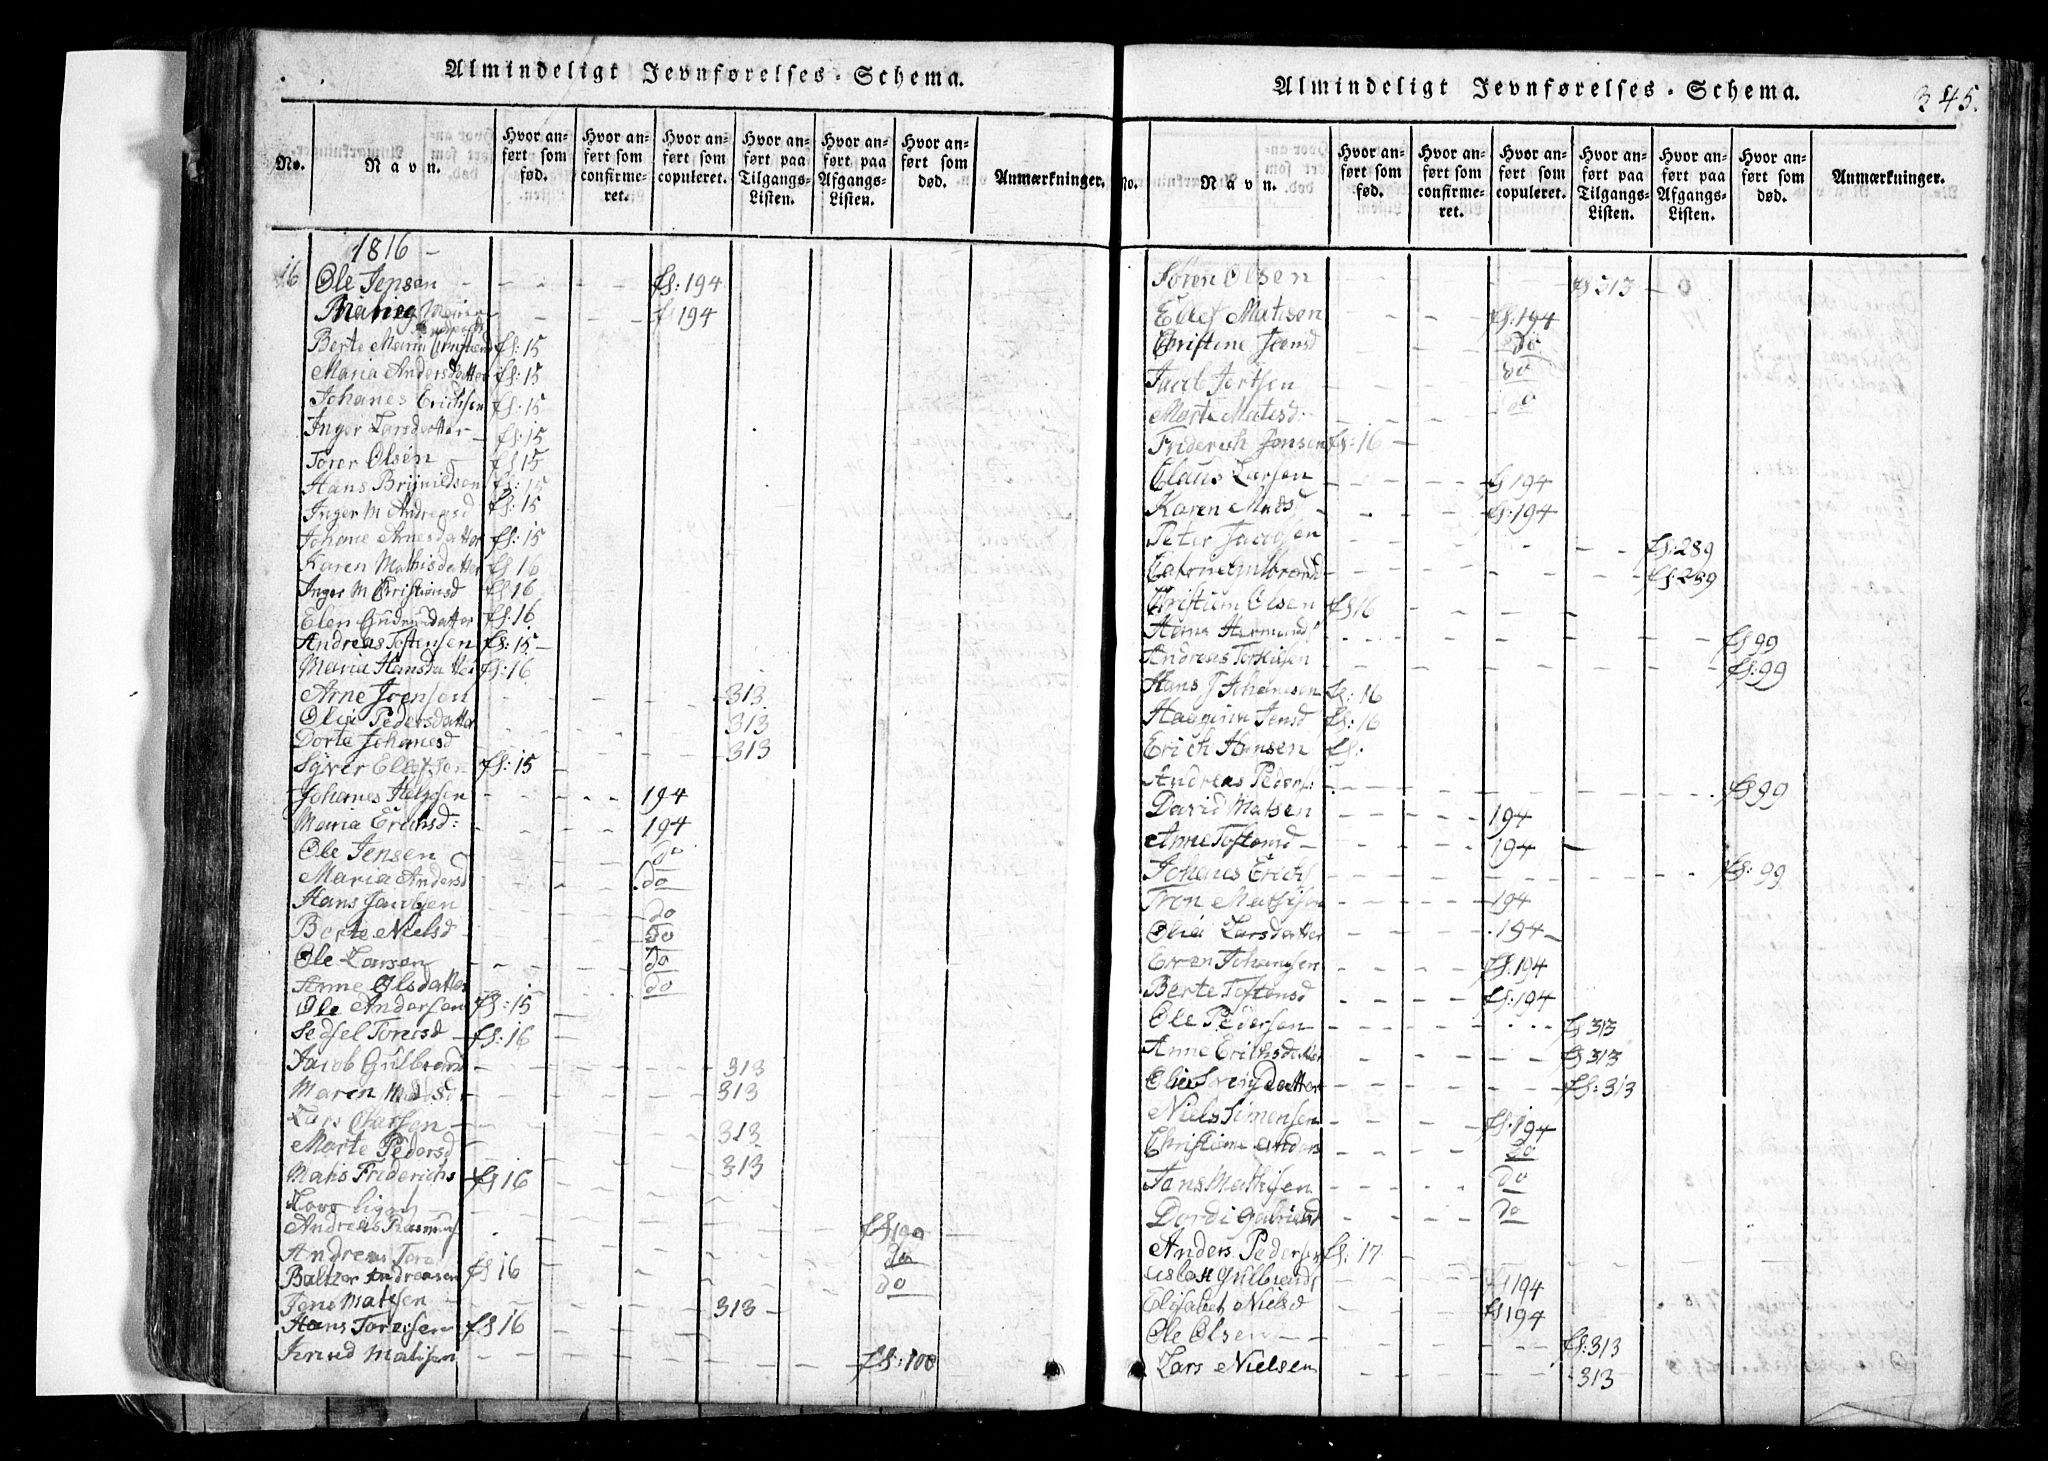 Almindeligt Jevnførelses-Schema.
No.
Navn.
Hvor anført som fød.
Hvor anført som confirmeret.
Hvor anført som copuleret.
Hvor anført paa Tilgangs-Listen.
Hvor anført paa Afgangs-Listen.
Hvor anført som død.
Anmærkninger.
1816 –
16 Ole Jensen fs: 194
Maria f 194
Berte Maria fs: 15
Maria Andersdatter fs: 15
Johanes Erichsen fs: 15
Inger Larsdatter fs: 15
Torer Olsen fs 15
Hans Brynildsen fs: 15
Inger M Andreasd fs: 15
Johane Arnesdatter fs: 15
Karen Mathisdatter fs 16
Inger M Christiansd fs 16
Elen Gudmundatter fs: 16
Andreas Tostensen fs: 15
Maria Hansdatter fs: 16
Arne Joensen 313
Olia Pedersdatter 313
Dorte Johanesd 313
Syver Ellefsen fs: 15
Johanes Helgesen 194
Maria Erichsd: 194
Ole Jensen do
Maria Andersd do
Hans Jacobsen do
Berte Nielsd do
Ole Larsen do
Anne Olsdatter do
Ole Andersen fs: 15
Sedsel Torersd fs: 16
Jacob Gulbrand 313
Maren Madsd 313
Lars Olafsen 313
Marte Pedersd 313
Matis Friderichs fs 16
Andreas Rasmus fs 100
Andreas Tore do
Baltzer Andreasen fs 16 do
Jens Matsen 313
Hans Torersen fs 16
Matisen fs: 100
Almindeligt Jevnførelses-Schema.
345.
No.
Navn.
Hvor anført som fød.
Hvor anført som confirmeret.
Hvor anført som copuleret.
Hvor anført paa Tilgangs-Listen.
Hvor anført paa Afgangs-Listen.
Hvor anført som død.
Anmærkninger.
Søren Olsen fs 313
Ellef Matisen fs. 194
Christene Joensd do
Jacob do
Marte Matisd. do
Friderich Jonsen fs: 16
Claus Larsen fs 194
Karen Madsd fs: 194
Peter Jacobsen fs: 289
fs: 289
Christian Olsen fs 16
Hans Hermands fs 99
Andreas Torkilsen fs: 99
Hans J Johanesen fs: 16
Jensd fs: 16
Erich Hansen fs:
Andreas Peders: fs 99
David Matsen 194
Anne Tostensd 194
Johanes Erichs fs: 99
Tron Mathisen 194
Olia Larsdatter 194
Even Johansen fs. 194
Berte Tostensd fs. 194
Ole Pedersen fs 313
Anne Erichsdatter fs 313
Olia datter fs: 313
Niels Simensen fs. 194
Christiane Anders do
Jens Mathisen do
Dordi Gabrielsd do
Anders Pedersen fs: 17
Aslak Gulbrands f 194
Elisabet Nielsd fs 194
Ole Olsen fs: 313
Lars Nielsen 313